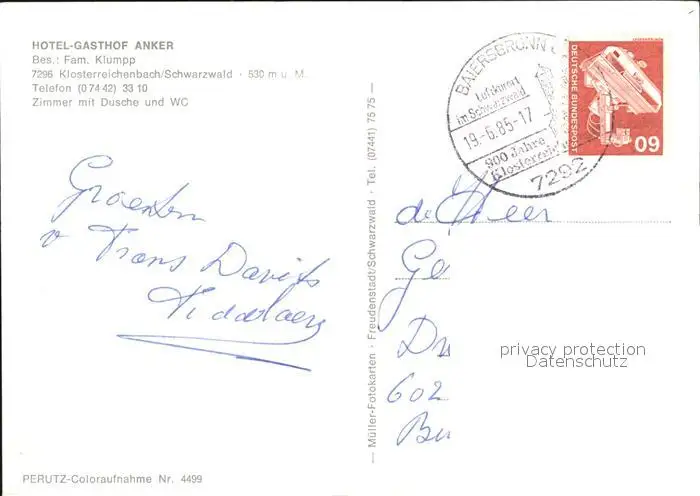 HOTEL-GASTHOF ANKER
Bes.: Fam. Klumpp
7296 Klosterreichenbach/Schwarzwald · 530 m ü. M.
Telefon (07442) 33 10
Zimmer mit Dusche und WC
v Frans Davits
PERUTZ-Coloraufnahme Nr. 4499
— Müller-Fotokarten · Freudenstadt/Schwarzwald · Tel. (07441) 75 75 —
BAIERSBRONN
Luftkurort
im Schwarzwald
19.-6.85-17
900 Jahre
Klosterreich
7292
DEUTSCHE BUNDESPOST
60
de Heer
Ge
602
privacy protection
Datenschutz